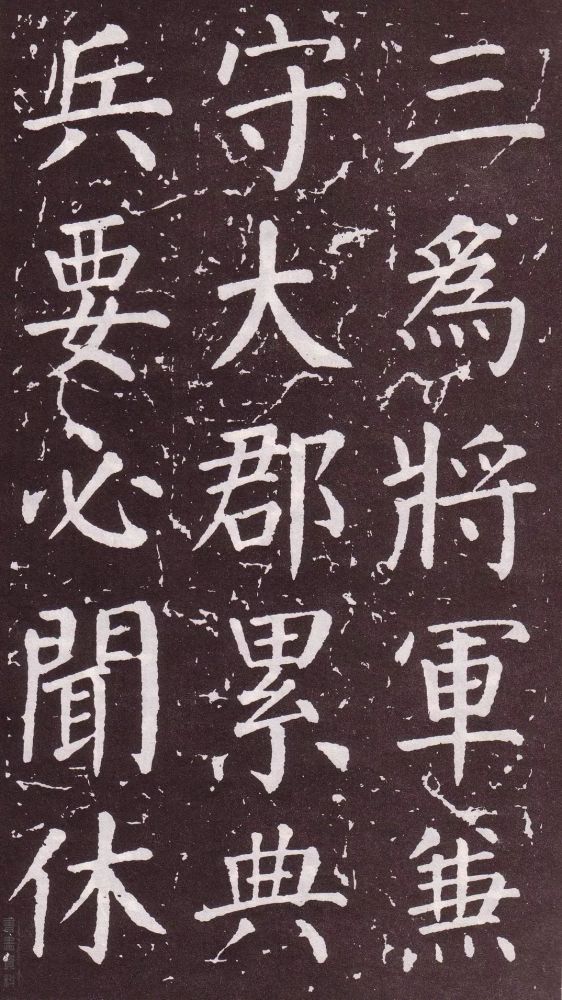 三爲將軍兼
守大郡累典
兵要必聞休